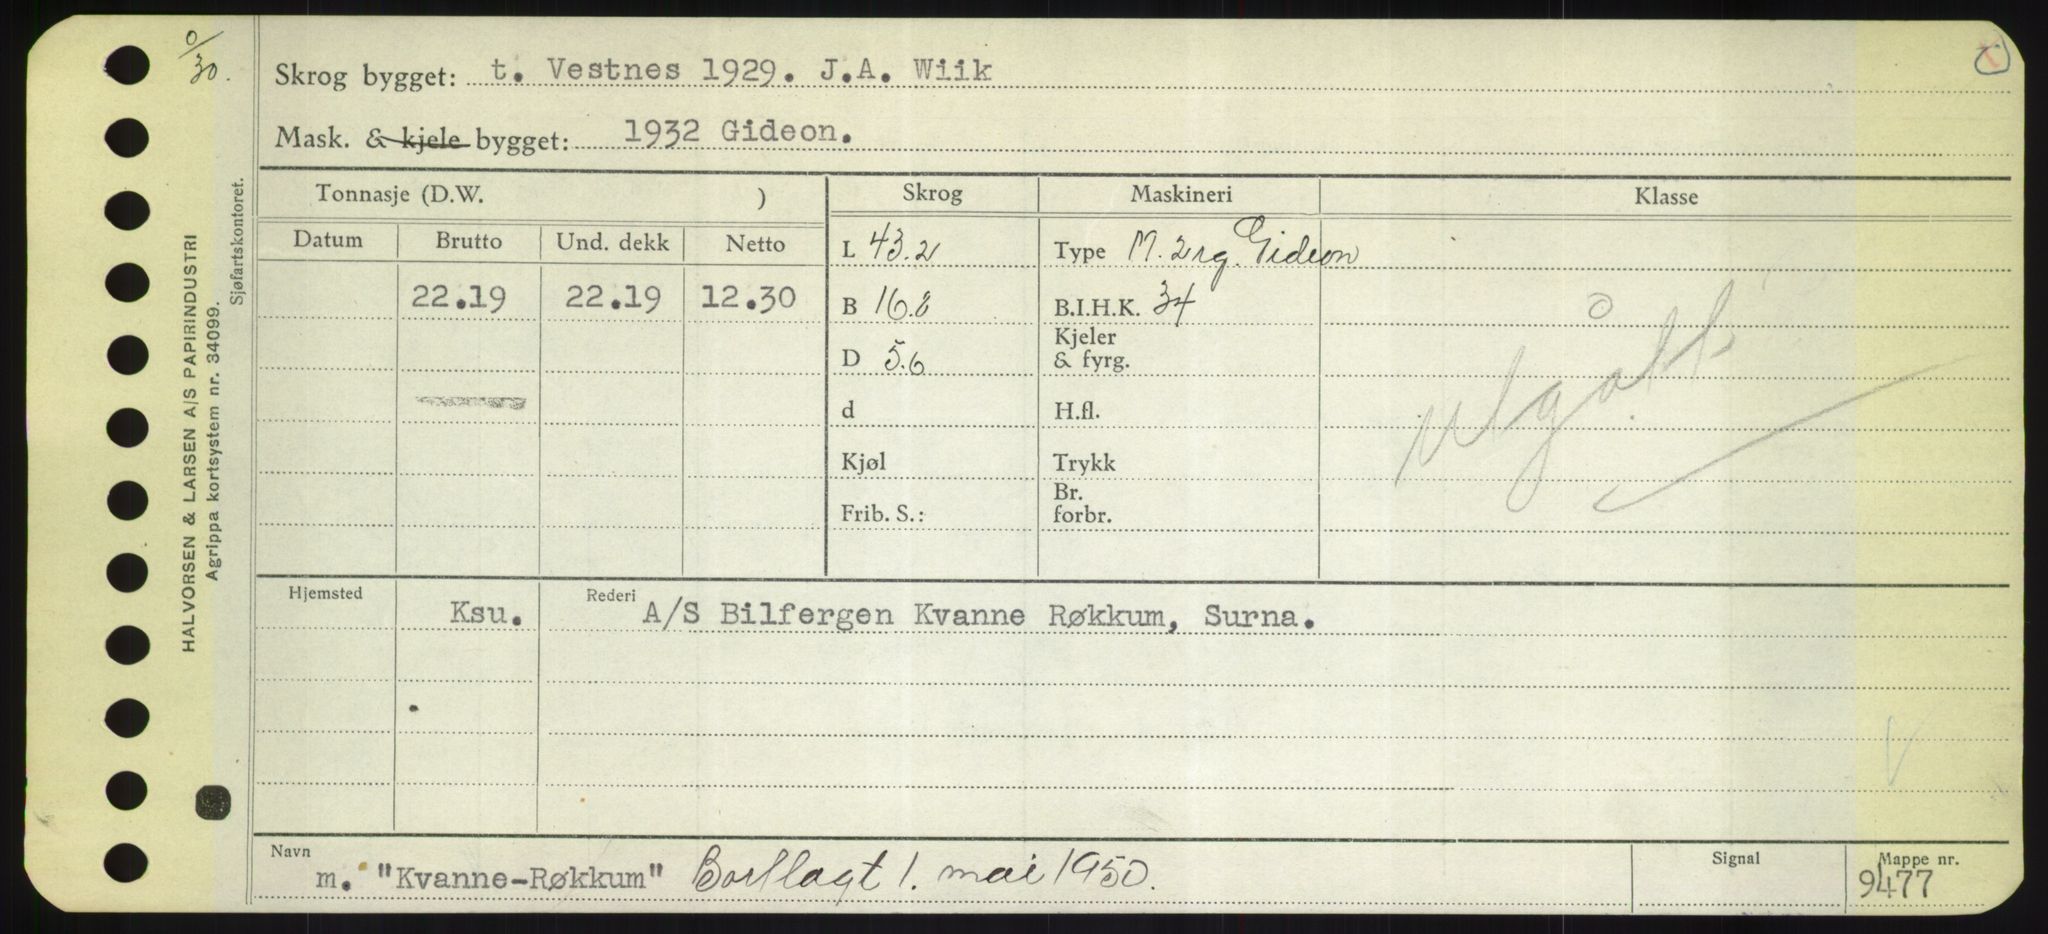 0/30.
HALVORSEN & LARSEN A/S PAPIRINDUSTRI
Agrippa kortsystem nr. 34099.
Sjøfartskontoret.
Skrog bygget: t. Vestnes 1929. J.A. Wiik
Mask. & kjele bygget: 1932 Gideon.
Tonnasje (D.W. ) Skrog Maskineri Klasse
Datum Brutto Und. dekk Netto
L 43.2 Type M. 2 rg. Gideon
22.19 22.19 12.30 B 16.8 B.I.H.K. 34
D 5.6 Kjeler & fyrg.
d H.fl.
Kjøl Trykk
Frib. S.: Br. forbr.
Utgått
Hjemsted Ksu. Rederi A/S Bilfergen Kvanne Røkkum, Surna.
Navn Signal Mappe nr.
m. "Kvanne-Røkkum" Bortlagt 1. mai 1950. 9477